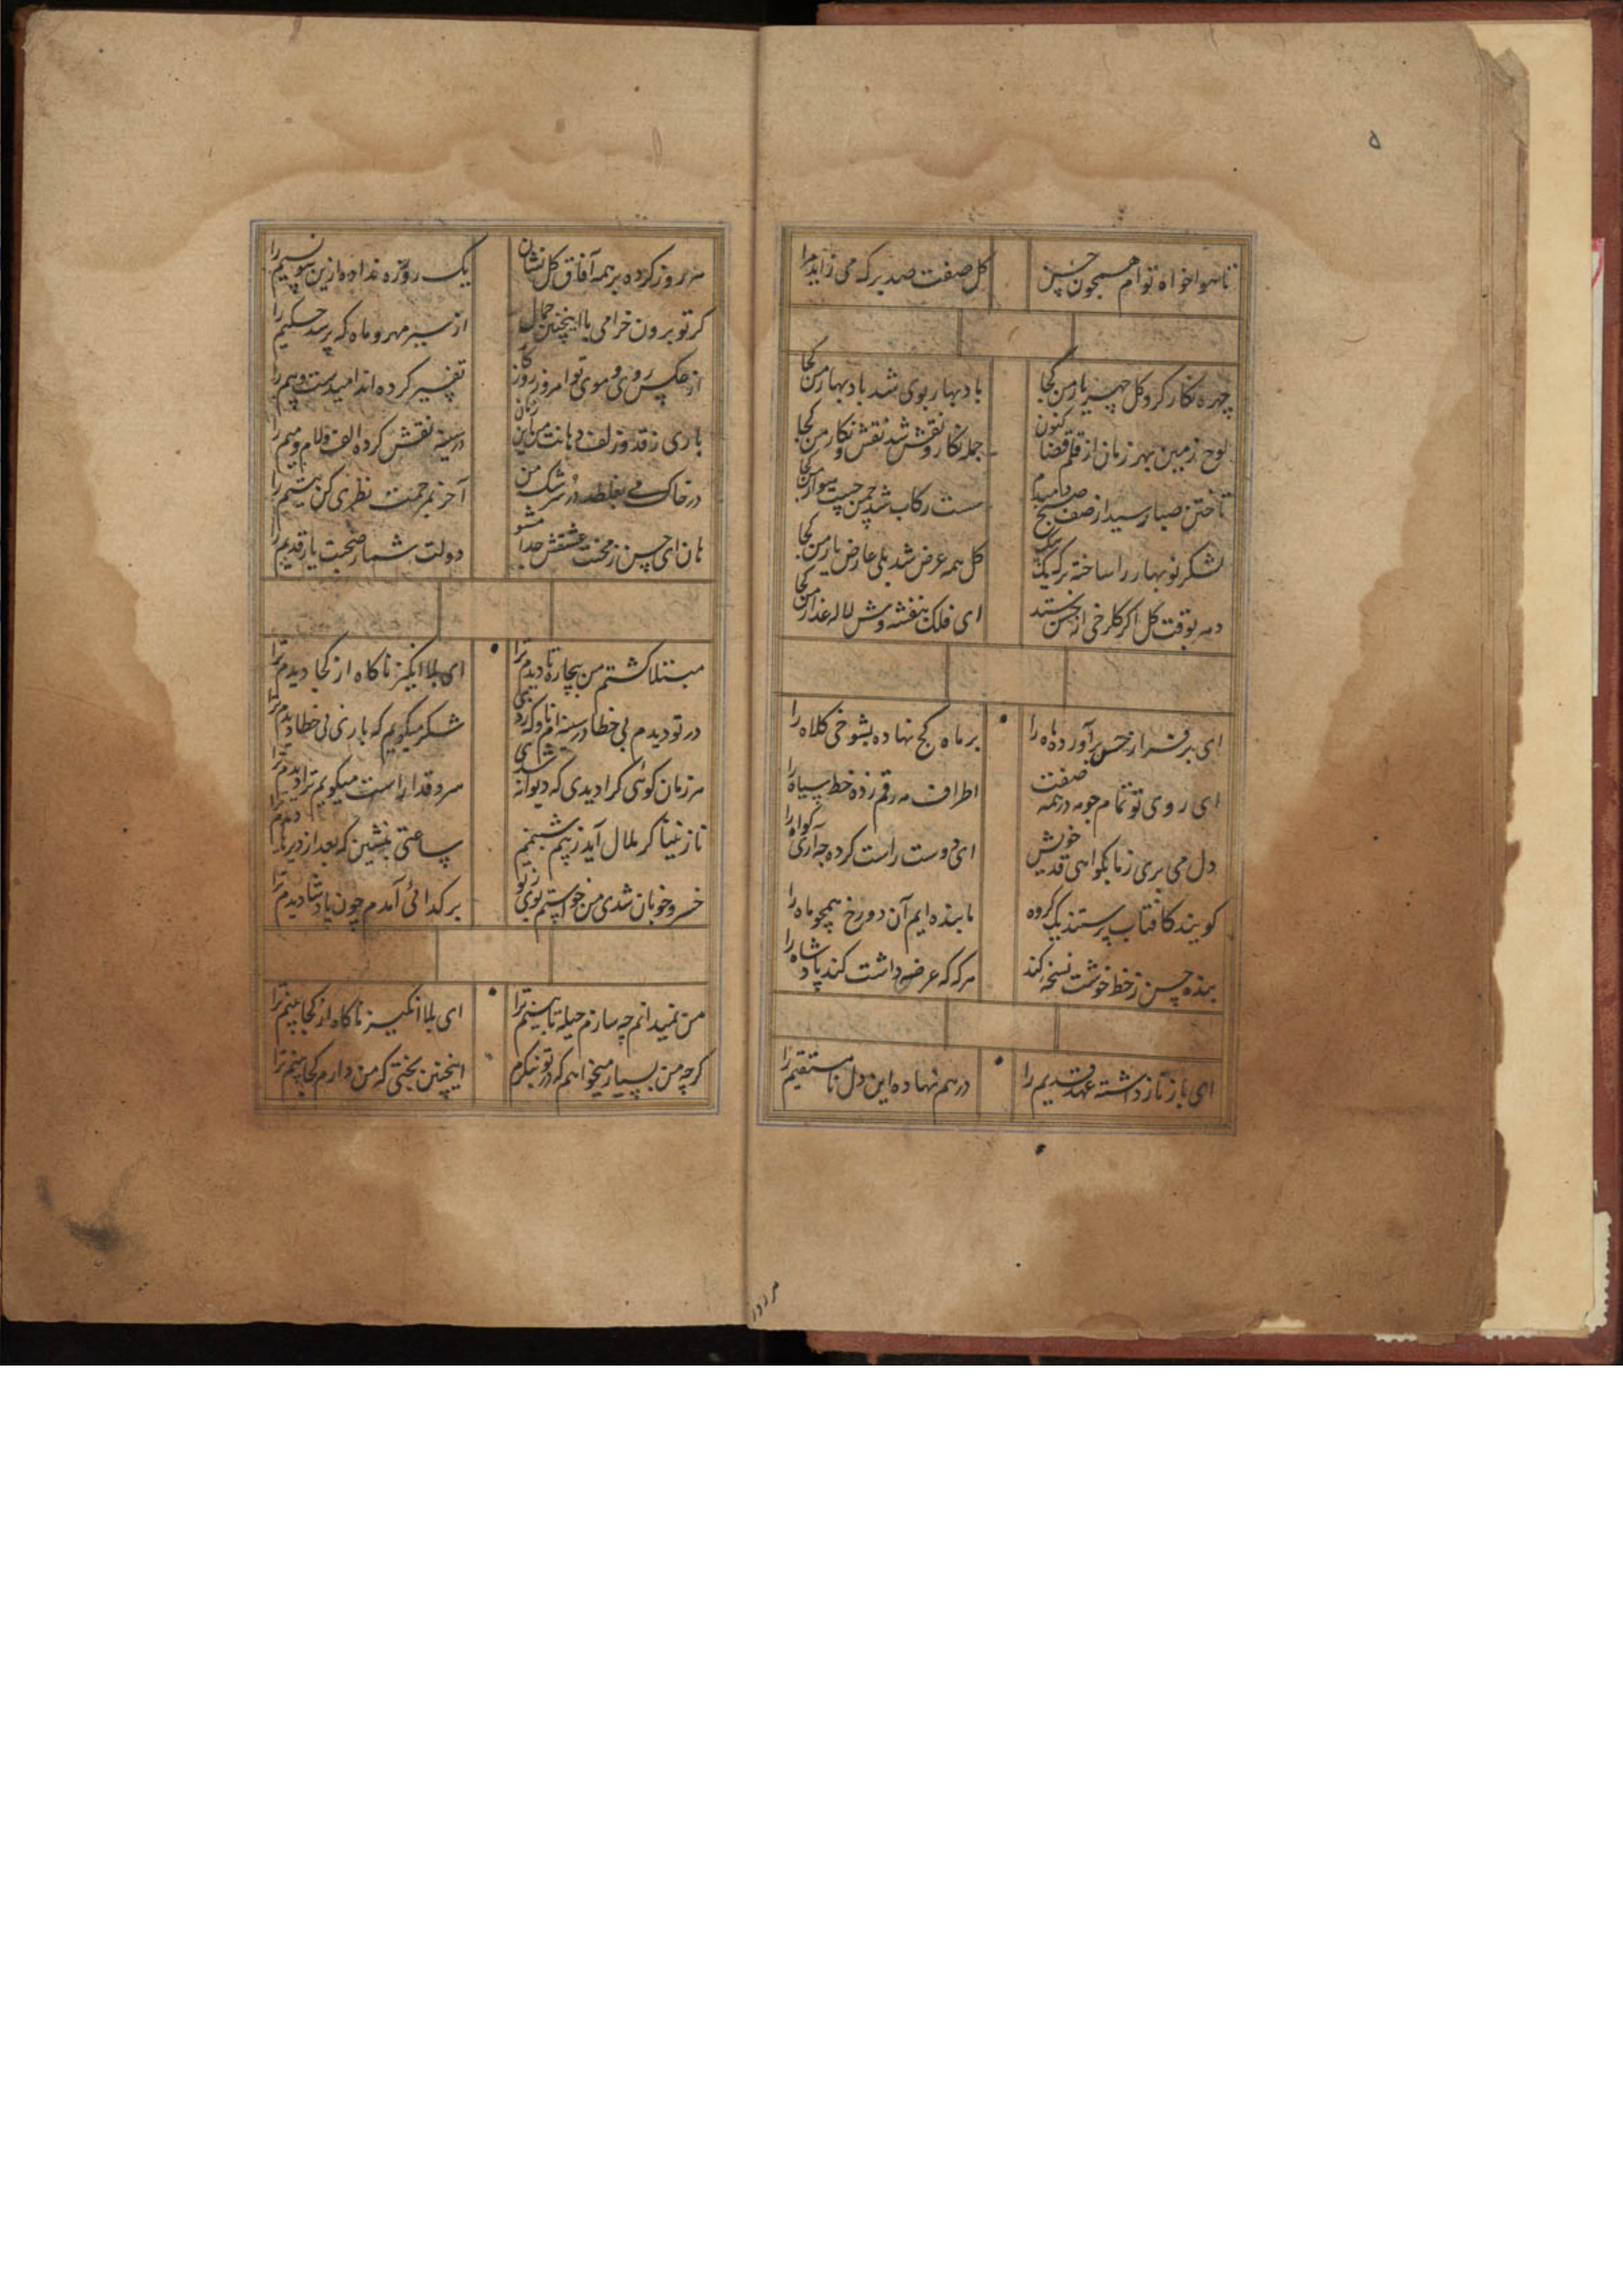 ۵
تا هواخواه توام همچون حسن
گل صفت صد برگ می زاید مرا
چهره نگار کرد گل چهره یار من کجا
باد بهار بوی شد باد بهار من کجا
لوح زمین بهر زمان از قلم قضا کنون
جمله نگار و نقش شد نقش و نگار من کجا
تاختن صبا رسید از صف صبح صبحدم
سست رکاب شد چمن چست سوار من کجا
لشکر نوبهار را ساخته برک یک بیک
گل همه عرض شد بلی عارض یار من کجا
دمه بوقت کل اکر کلرخی از حسن ستد
ای فلک بنفشه وش لاله عذار من کجا
ای بر فراز حسن برآورده ماه را
بر ماه کج نهاده بشوخی کلاه را
ای روی تو تمام چو مه در همه صفت
اطراف مه رقم زده خط سیاه را
دل می بری ز ما بگواهی قد خویش
ای دوست راست کرده چه آری گواه را
کویند کافتاب پرستند یک کروه
ما بنده ایم آن دو رخ همچو ماه را
بنده حسن ز خط خوشت نسخه کند
هر که که عرضه داشت کند پادشاه را
ای باز ناز داشته عهد قدیم را
درهم نهاده این دل نامستقیم را
هر روز
مه روز کرده بر همه آفاق کل نشان
یک روزه نداده ازین سو نسیم را
کر تو برون خرامی با اینچنین جمال
از سیر مهر و ماه که پرسد حکیم را
از عکس روی و موی تو امروز روزکار
تفسیر کرده اند امیدست و بیم را
باری ز قد و زلف و دهانت من این زمان
در سینه نقش کرده الف و لام و میم را
در خاک می بغلطد در سرشک من
آخر بمرحمت نظری کن یتیم را
هان ای حسن ز محنت عشقش جدا مشو
دولت شمار صحبت یار قدیم را
مبتلا کشتم من بیچاره تا دیدم ترا
ای بلا انکیز ناکاه از کجا دیدم ترا
در تو دیدم بی خطا در سینه ام ناوک زدی
شکر میکویم که باری بی خطا دیدم ترا
هر زمان کوئی کرا دیدی که دیوانه شدی
سرو قدا راست میکویم ترا دیدم ترا
نازنینا کر ملال آید ز پیم شبنم
ساعتی بنشین که بعد از دیرها دیدم ترا
خسرو خوبان شدی من خواستم بوی ز تو
بر کدائی آمدم چون پادشا دیدم ترا
من نمیدانم چه سازم حیله تا بینم ترا
ای بلا انکیز ناکاه از کجا بینم ترا
کرچه من بسیار میخواهم که در تو بنکرم
اینچنین بختی که من دارم کجا بینم ترا